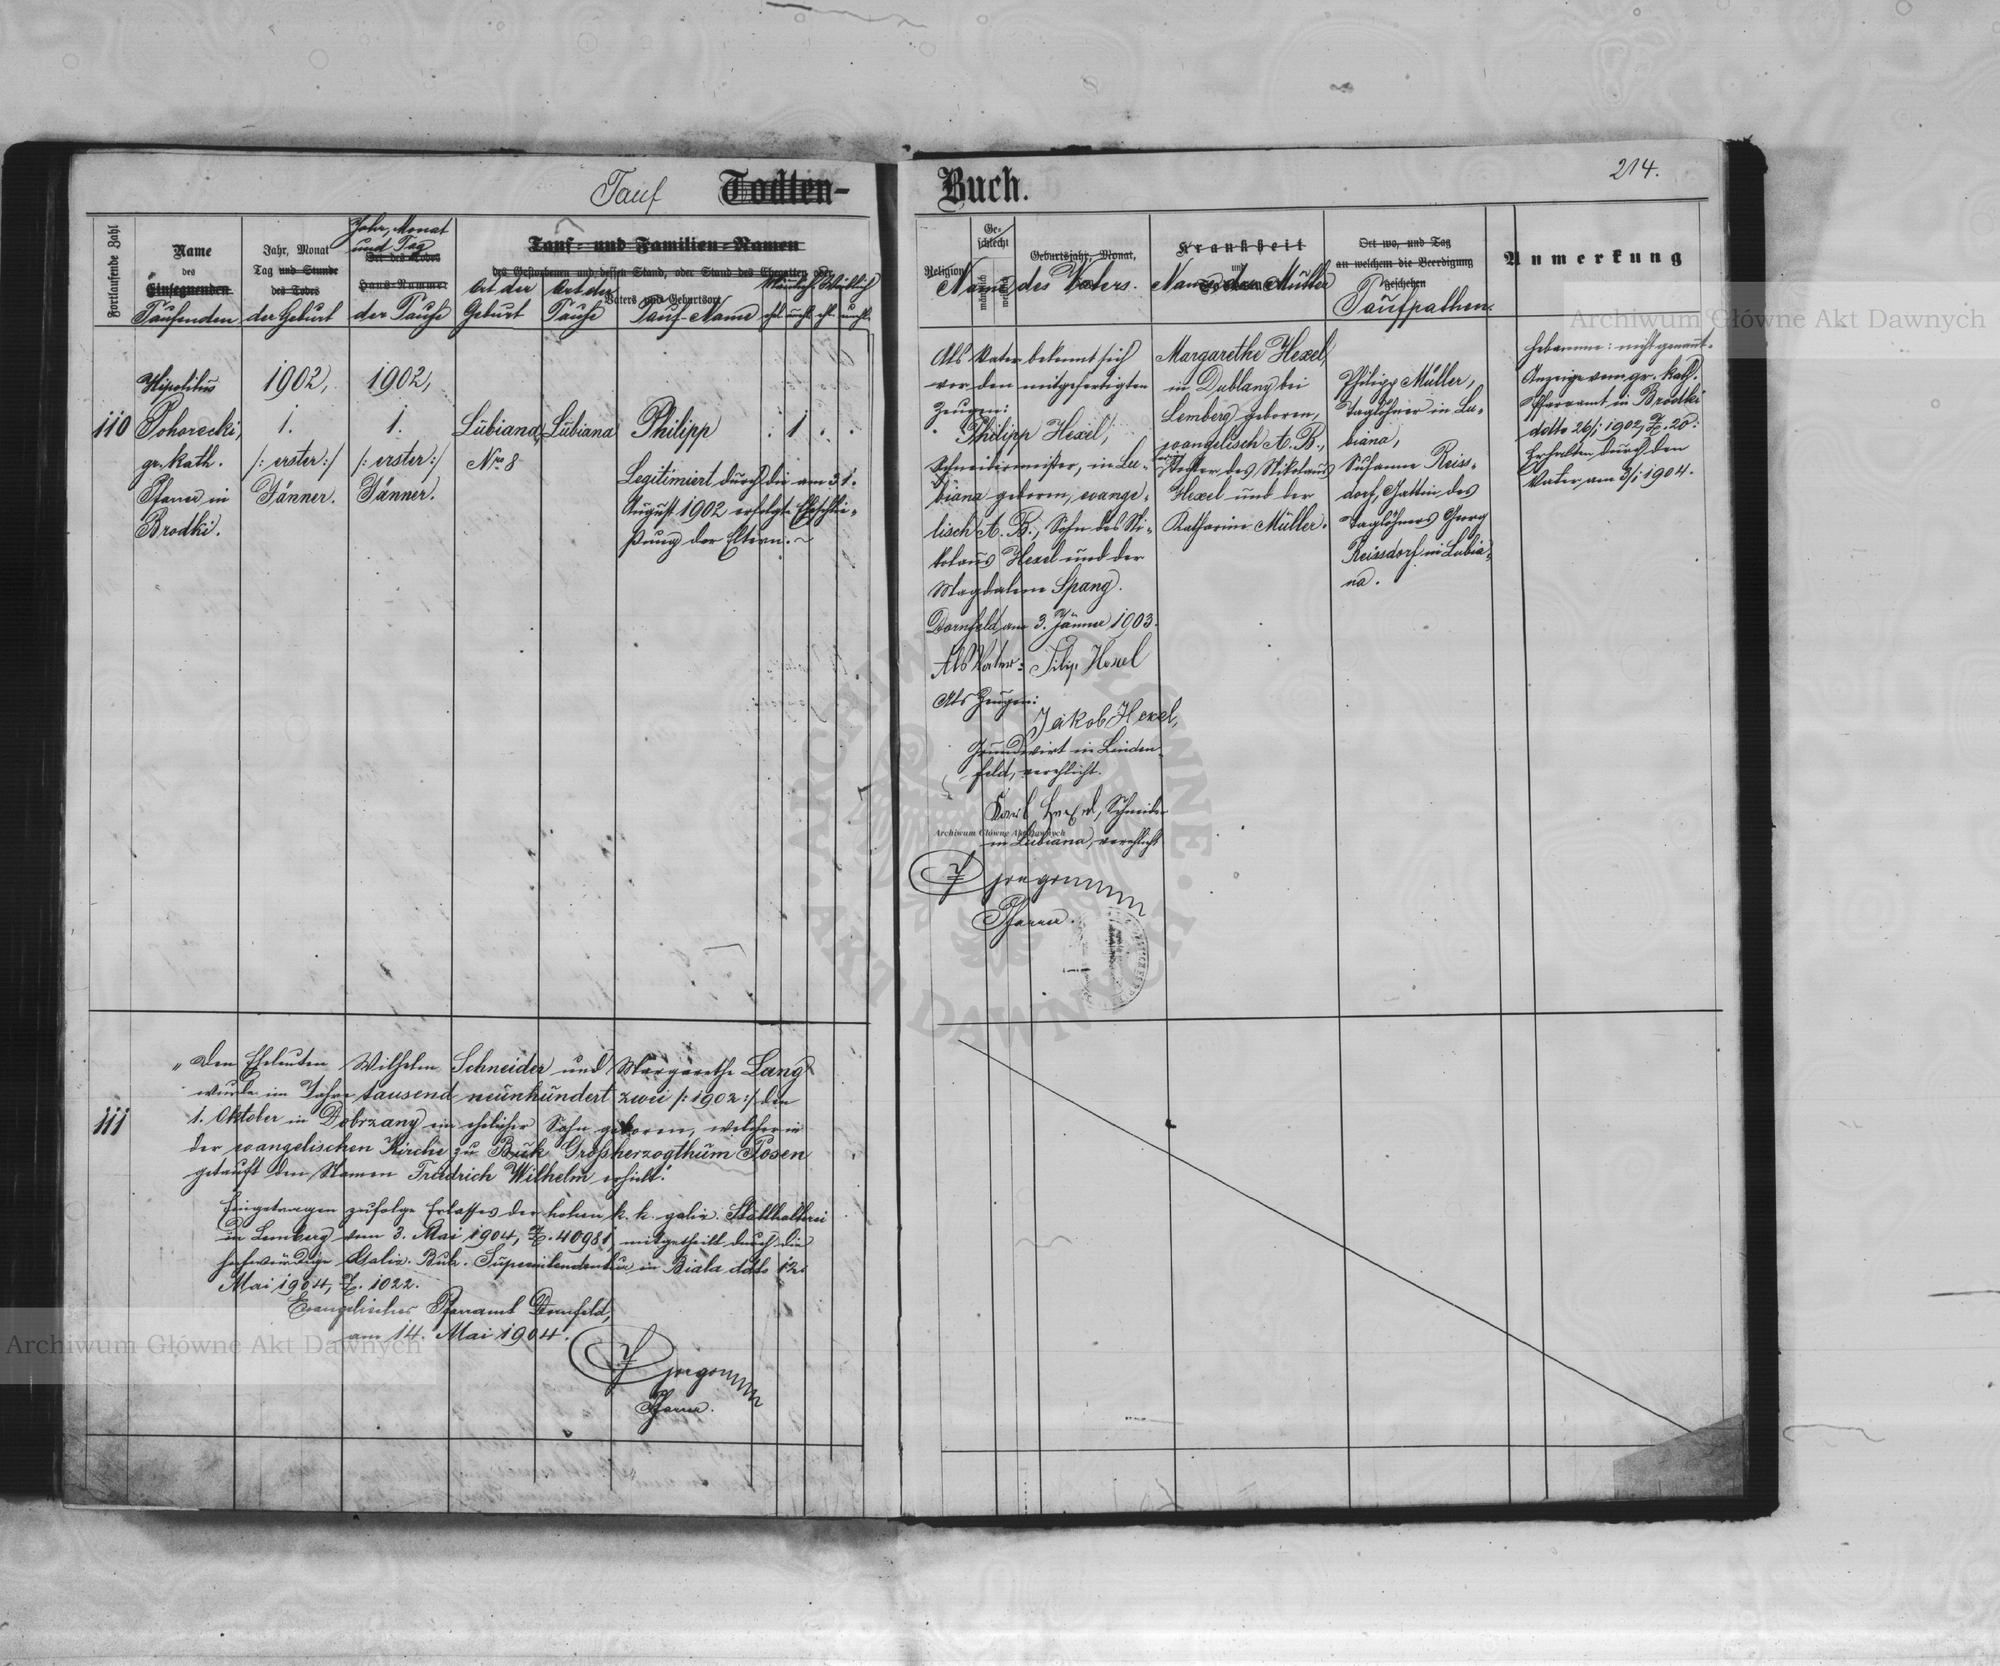 214.
Tauf Todten-Buch.
Fortlaufende Zahl
Name
des
Einsegnenden
Taufenden
Jahr, Monat
Tag und Stunde
des Todes
der Geburt
Jahr, Monat
und Tag
Ort des Todes
Haus-Nummer
der Taufe
Tauf- und Familien-Namen
des Gestorbenen und dessen Stand, oder Stand des Ehegatten oder
Vaters und Geburtsort
Ort der
Geburt
Ort der
Taufe
Tauf-Name
Männlich Weiblich
ehl. unehl. ehl. unehl.
Religion
Ge-
schlecht
männlich
weiblich
Geburtsjahr, Monat,
Name des Vaters.
Krankheit
und
Name der Mutter
Ort wo, und Tag
an welchem die Beerdigung
geschehen
Taufpathen.
Anmerkung
110
Hipolitus
Pohorecki,
gr. kath.
Pfarrer in
Brodki.
1902,
1.
/: erster :/
Jänner.
1902,
1.
/: erster :/
Jänner.
Lubiana
Nro 8
Lubiana
Philipp
1
Legitimiert durch die am 31.
August 1902 erfolgte Eheschlie-
ßung der Eltern.
Als Vater bekennt sich
vor den mitgefertigten
Zeugen:
Philipp Hexel,
Schneidermeister, in Lu-
biana geboren, evange-
lisch A. B., Sohn des Ni-
kolaus Hexel und der
Magdalena Spang.
Dornfeld, am 3. Jänner 1903.
Als Vater: Filip Hexel
Als Zeugen:
Jakob Hexel,
Grundwirt in Linden-
feld, verehlicht.
Karl Hexel, Schneider
in Lubiana, verehlicht
Pfarrer.
Margarethe Hexel,
in Dublany bei
Lemberg geboren,
evangelisch A. B.,
Tochter des Nikolaus
Hexel und der
Katharina Müller.
Philipp Müller,
Taglöhner in Lu-
biana,
Susanna Reiss-
dorf, Gattin des
Taglöhners Georg
Reissdorf in Lubia-
na.
Hebamme: nicht genannt.
Anzeige vom gr. kath.
Pfarramt in Brodki
ddto 26/1 1902, Z. 20.
Erhalten durch den
Vater am 3/1 1904.
111
"Den Eheleuten Wilhelm Schneider und Margarethe Lang
wurde im Jahre tausend neunhundert zwei /: 1902 :/ den
1. Oktober in Dobrzany ein ehelicher Sohn geboren, welcher in
der evangelischen Kirche zu Buk Großherzogthum Posen
getauft den Namen Friedrich Wilhelm erhielt."
Eingetragen zufolge Erlasses der hohen k. k. galiz. Statthalterei
in Lemberg vom 3. Mai 1904, Z. 40981, mitgetheilt durch die
hochwürdige Galiz. Buk. Superintendentur in Biala ddto 12.
Mai 1904, Z. 1022.
Evangelisches Pfarramt Dornfeld,
am 14. Mai 1904.
Pfarrer.
Archiwum Główne Akt Dawnych
Archiwum Główne Akt Dawnych
Archiwum Główne Akt Dawnych